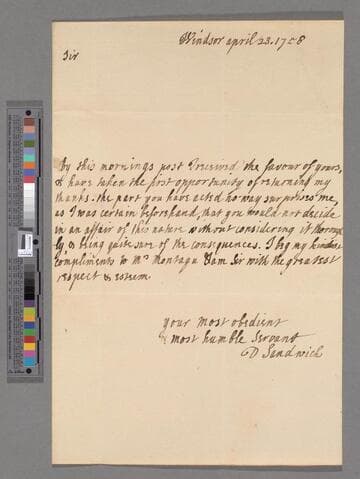 Windsor april 23. 1758
Sir
By this mornings post I received the favour of yours,
& have taken the first opportunity of returning my
thanks. the part you have acted no way surprises me,
as I was certain beforehand, that you would not decide
in an affair of this nature without considering it thorough
ly & being quite sure of the consequences. I beg my kindest
compliments to Mrs Montagu & am Sir with the greatest
respect & esteem
your most obedient
& most humble Servant
D Sandwich